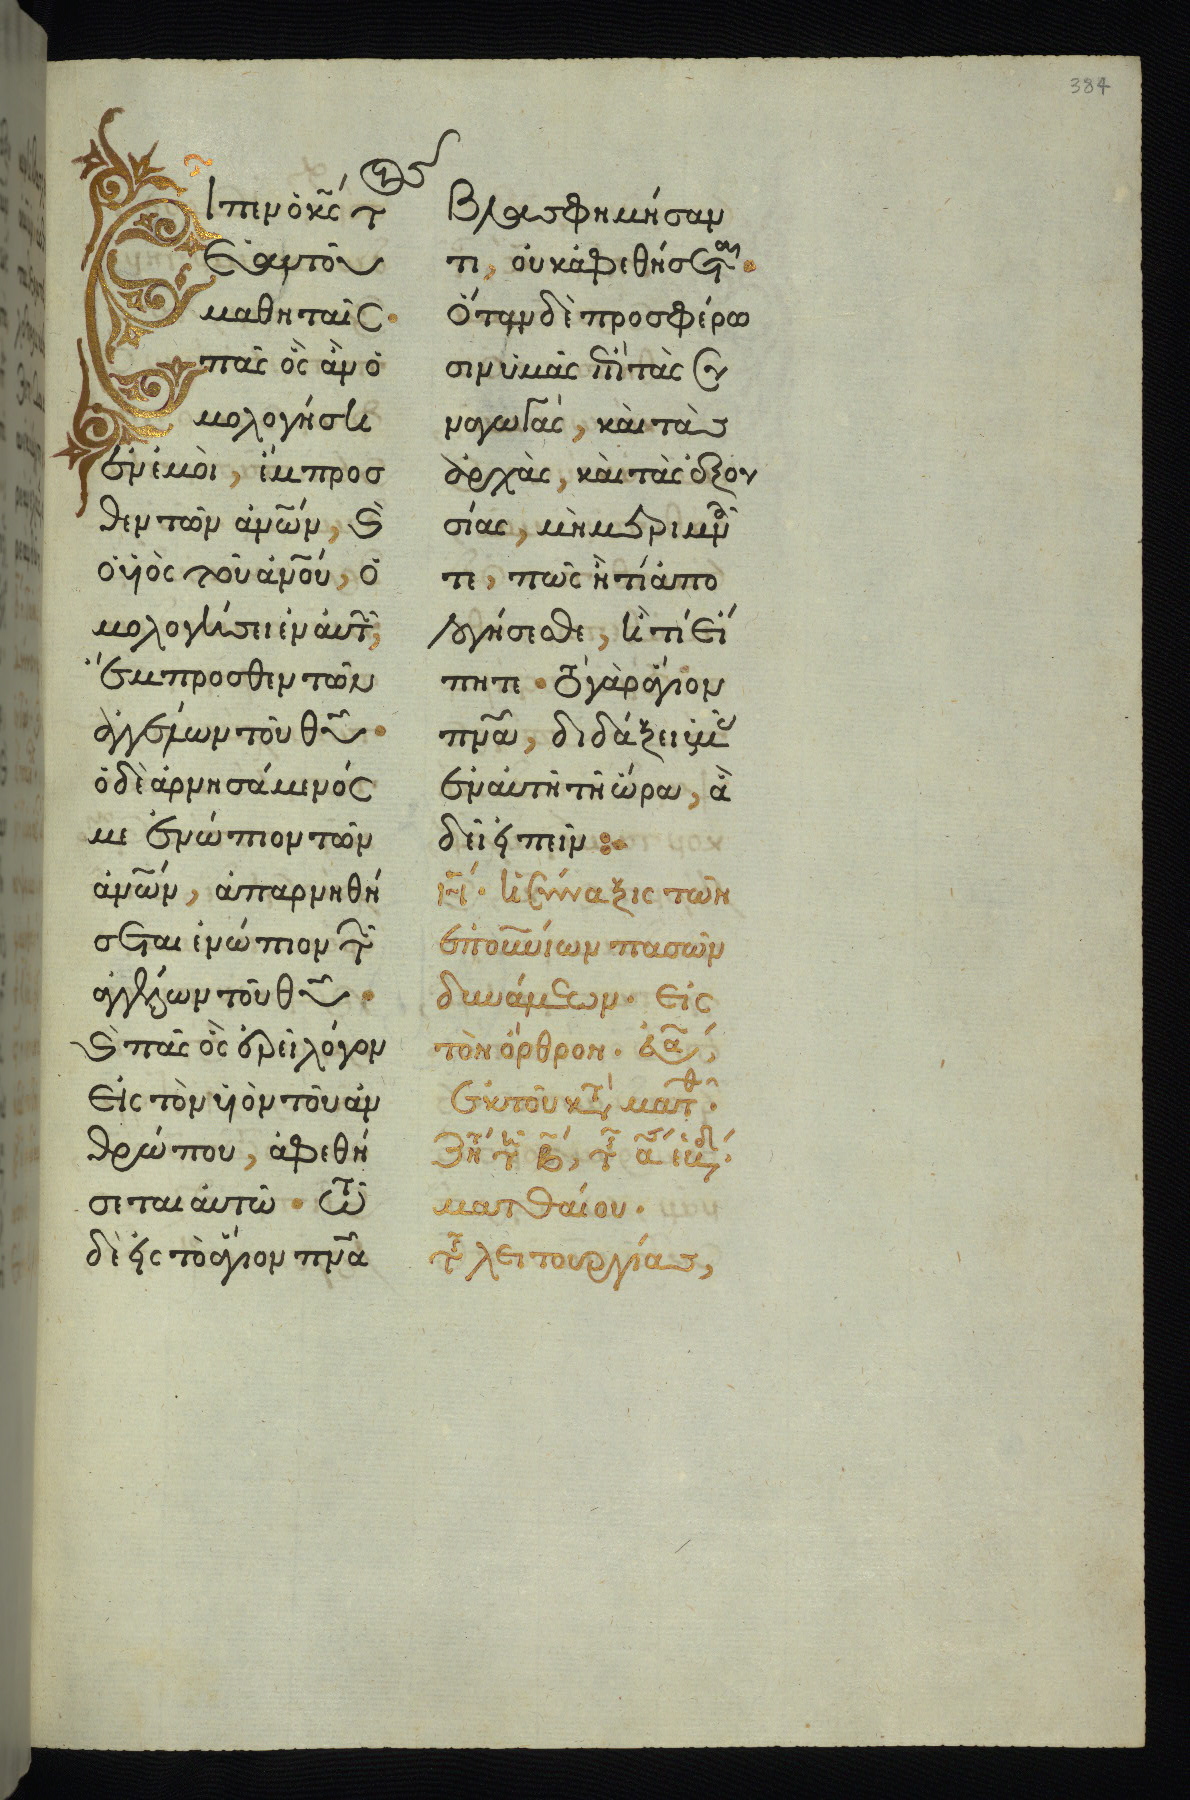 384
Εἶπεν ὁ κ̅ς τ
ἑαυτοῦ
μαθηταῖς·
πᾶς ὃς ἂν ὁ
μολογήσει
ἐν ἐμοὶ, ἔμπροσ
θεν τῶν ἀν̅ων, καὶ
ὁ υἱὸς τοῦ ἀν̅ου, ὁ
μολογήσει ἐν αὐτῷ,
ἔμπροσθεν τῶν
ἀγγέλων τοῦ θ̅υ·
ὁ δὲ ἀρνησάμενός
με ἐνώπιον τῶν
ἀν̅ων, ἀπαρνηθή
σεται ἐνώπιον τῶν
ἀγγέλων τοῦ θ̅υ·
καὶ πᾶς ὃς ἐρεῖ λόγον
εἰς τὸν υἱὸν τοῦ ἀν
θρώπου, ἀφεθή
σεται αὐτῶ· τῶ
δὲ εἰς τὸ ἅγιον πν̅α
βλασφημήσαν
τι, οὐκ ἀφεθήσεται·
Ὅταν δὲ προσφέρω
σιν ὑμᾶς ἐπὶ τὰς συ
ναγωγὰς, καὶ τὰς
ἀρχὰς, καὶ τὰς ἐξου
σίας, μὴ μεριμνᾶ
τε, πῶς ἢ τί ἀπο
λογήσεσθε, ἢ τί εἴ
πητε· τὸ γὰρ ἅγιον
πν̅α, διδάξει ὑμᾶς
ἐν αὐτῆ τῆ ὥρα, ἃ
δεῖ εἰπεῖν:
η̅· ἡ σύναξις τῶν
ἐπουνίων πασῶν
δυνάμεων· εἰς
τὸν ὄρθρον· εὐα,
ἐκ τοῦ κατ ματθ·
ματθαίου·
τῆς λειτουργίας,